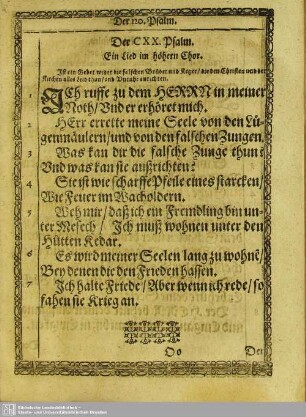 Der 120. Psalm.
Der CXX. Psalm.
Ein Lied im höhern Chor.
Ist ein Gebet wider die falschen Brüder und Ketzer/ die den Christen und der
Kirchen alles Leid thun/ und Unruhe anrichten.
1 ICh ruffe zu dem HERRN in meiner
Noth/ Und er erhöret mich.
2 HErr errette meine Seele von den Lü-
genmäulern/ und von den falschen Zungen.
3 Was kan dir die falsche Zunge thun?
Und was kan sie außrichten?
4 Sie ist wie scharffe Pfeile eines starcken/
Wie Feuer im Wacholdern.
5 Weh mir/ daß ich ein Frembdling bin un-
ter Mesech/ Ich muß wohnen unter den
Hütten Kedar.
6 Es wird meiner Seelen lang zu wohnẽ/
Bey denen die den Frieden hassen.
7 Ich halte Friede/ Aber wenn ich rede/ so
fahen sie Krieg an.
Oo
Der